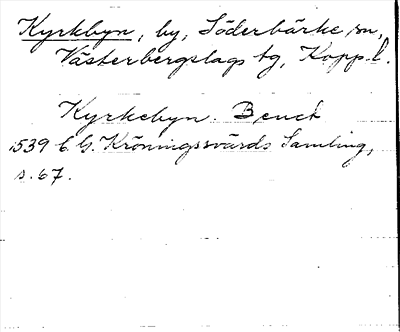 Kyrkbyn, by, Söderbärke sn,
Västerbergslags tg, Kopp. l.
Kyrkebyn. Benct
1539 C. G. Kröningssvärds Samling,
s. 67.